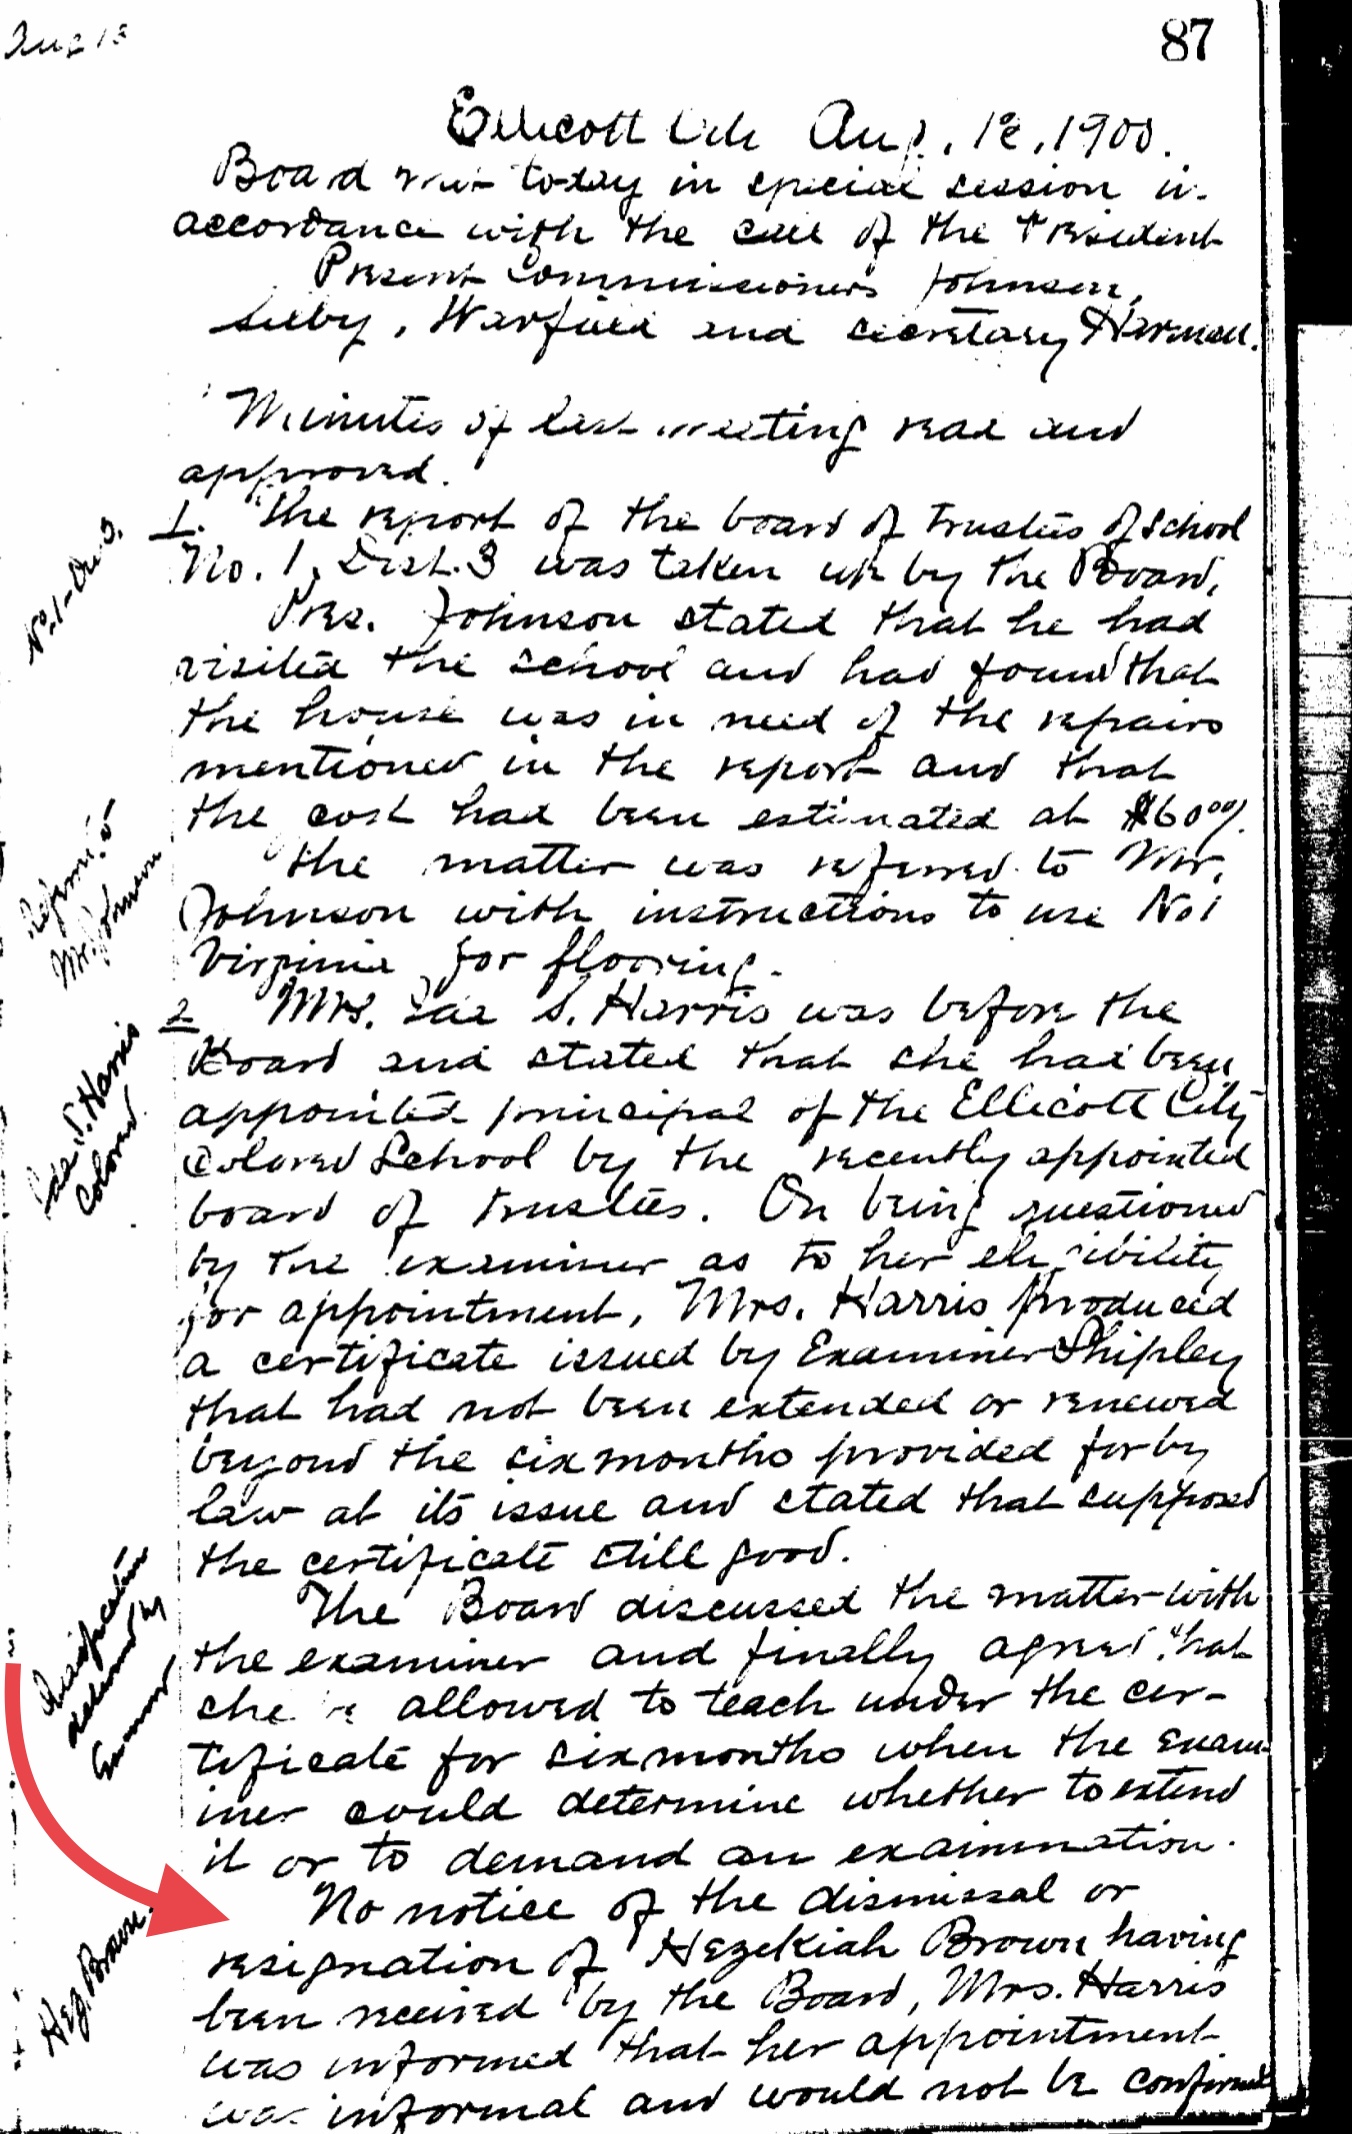 87
Ellicott City Aug. 1900.
Board met today in special session in
accordance with the call of the President
Present Commissioners Johnson,
Selby, Warfield and secretary Harman.
Minutes of last meeting read and
approved.
No. 1 - Dis 3.
1. The report of the board of trustees of School
No. 1, Dist. 3 was taken up by the Board,
Pres. Johnson stated that he had
visited the school and had found that
the house was in need of the repairs
mentioned in the report and that
the cost had been estimated at $60 00/.
Referred to
Mr. Johnson
The matter was referred to Mr.
Johnson with instructions to use No 1
Virginia for flooring.
Ida S. Harris
Colored
2 Mrs. Ida S. Harris was before the
Board and stated that she had been
appointed principal of the Ellicott City
Colored School by the recently appointed
board of trustees. On being questioned
by the examiner as to her eligibility
for appointment, Mrs. Harris produced
a certificate issued by Examiner Shipley
that had not been extended or renewed
beyond the six months provided for by
law at its issue and stated that supposed
the certificate still good.
The Board discussed the matter with
the examiner and finally agreed that
she be allowed to teach under the cer-
tificate for six months when the exam-
iner could determine whether to extend
it or to demand an examination.
Hez. Brown.
No notice of the dismissal or
resignation of Hezekiah Brown having
been received by the Board, Mrs. Harris
was informed that her appointment
was informal and would not be confirmed